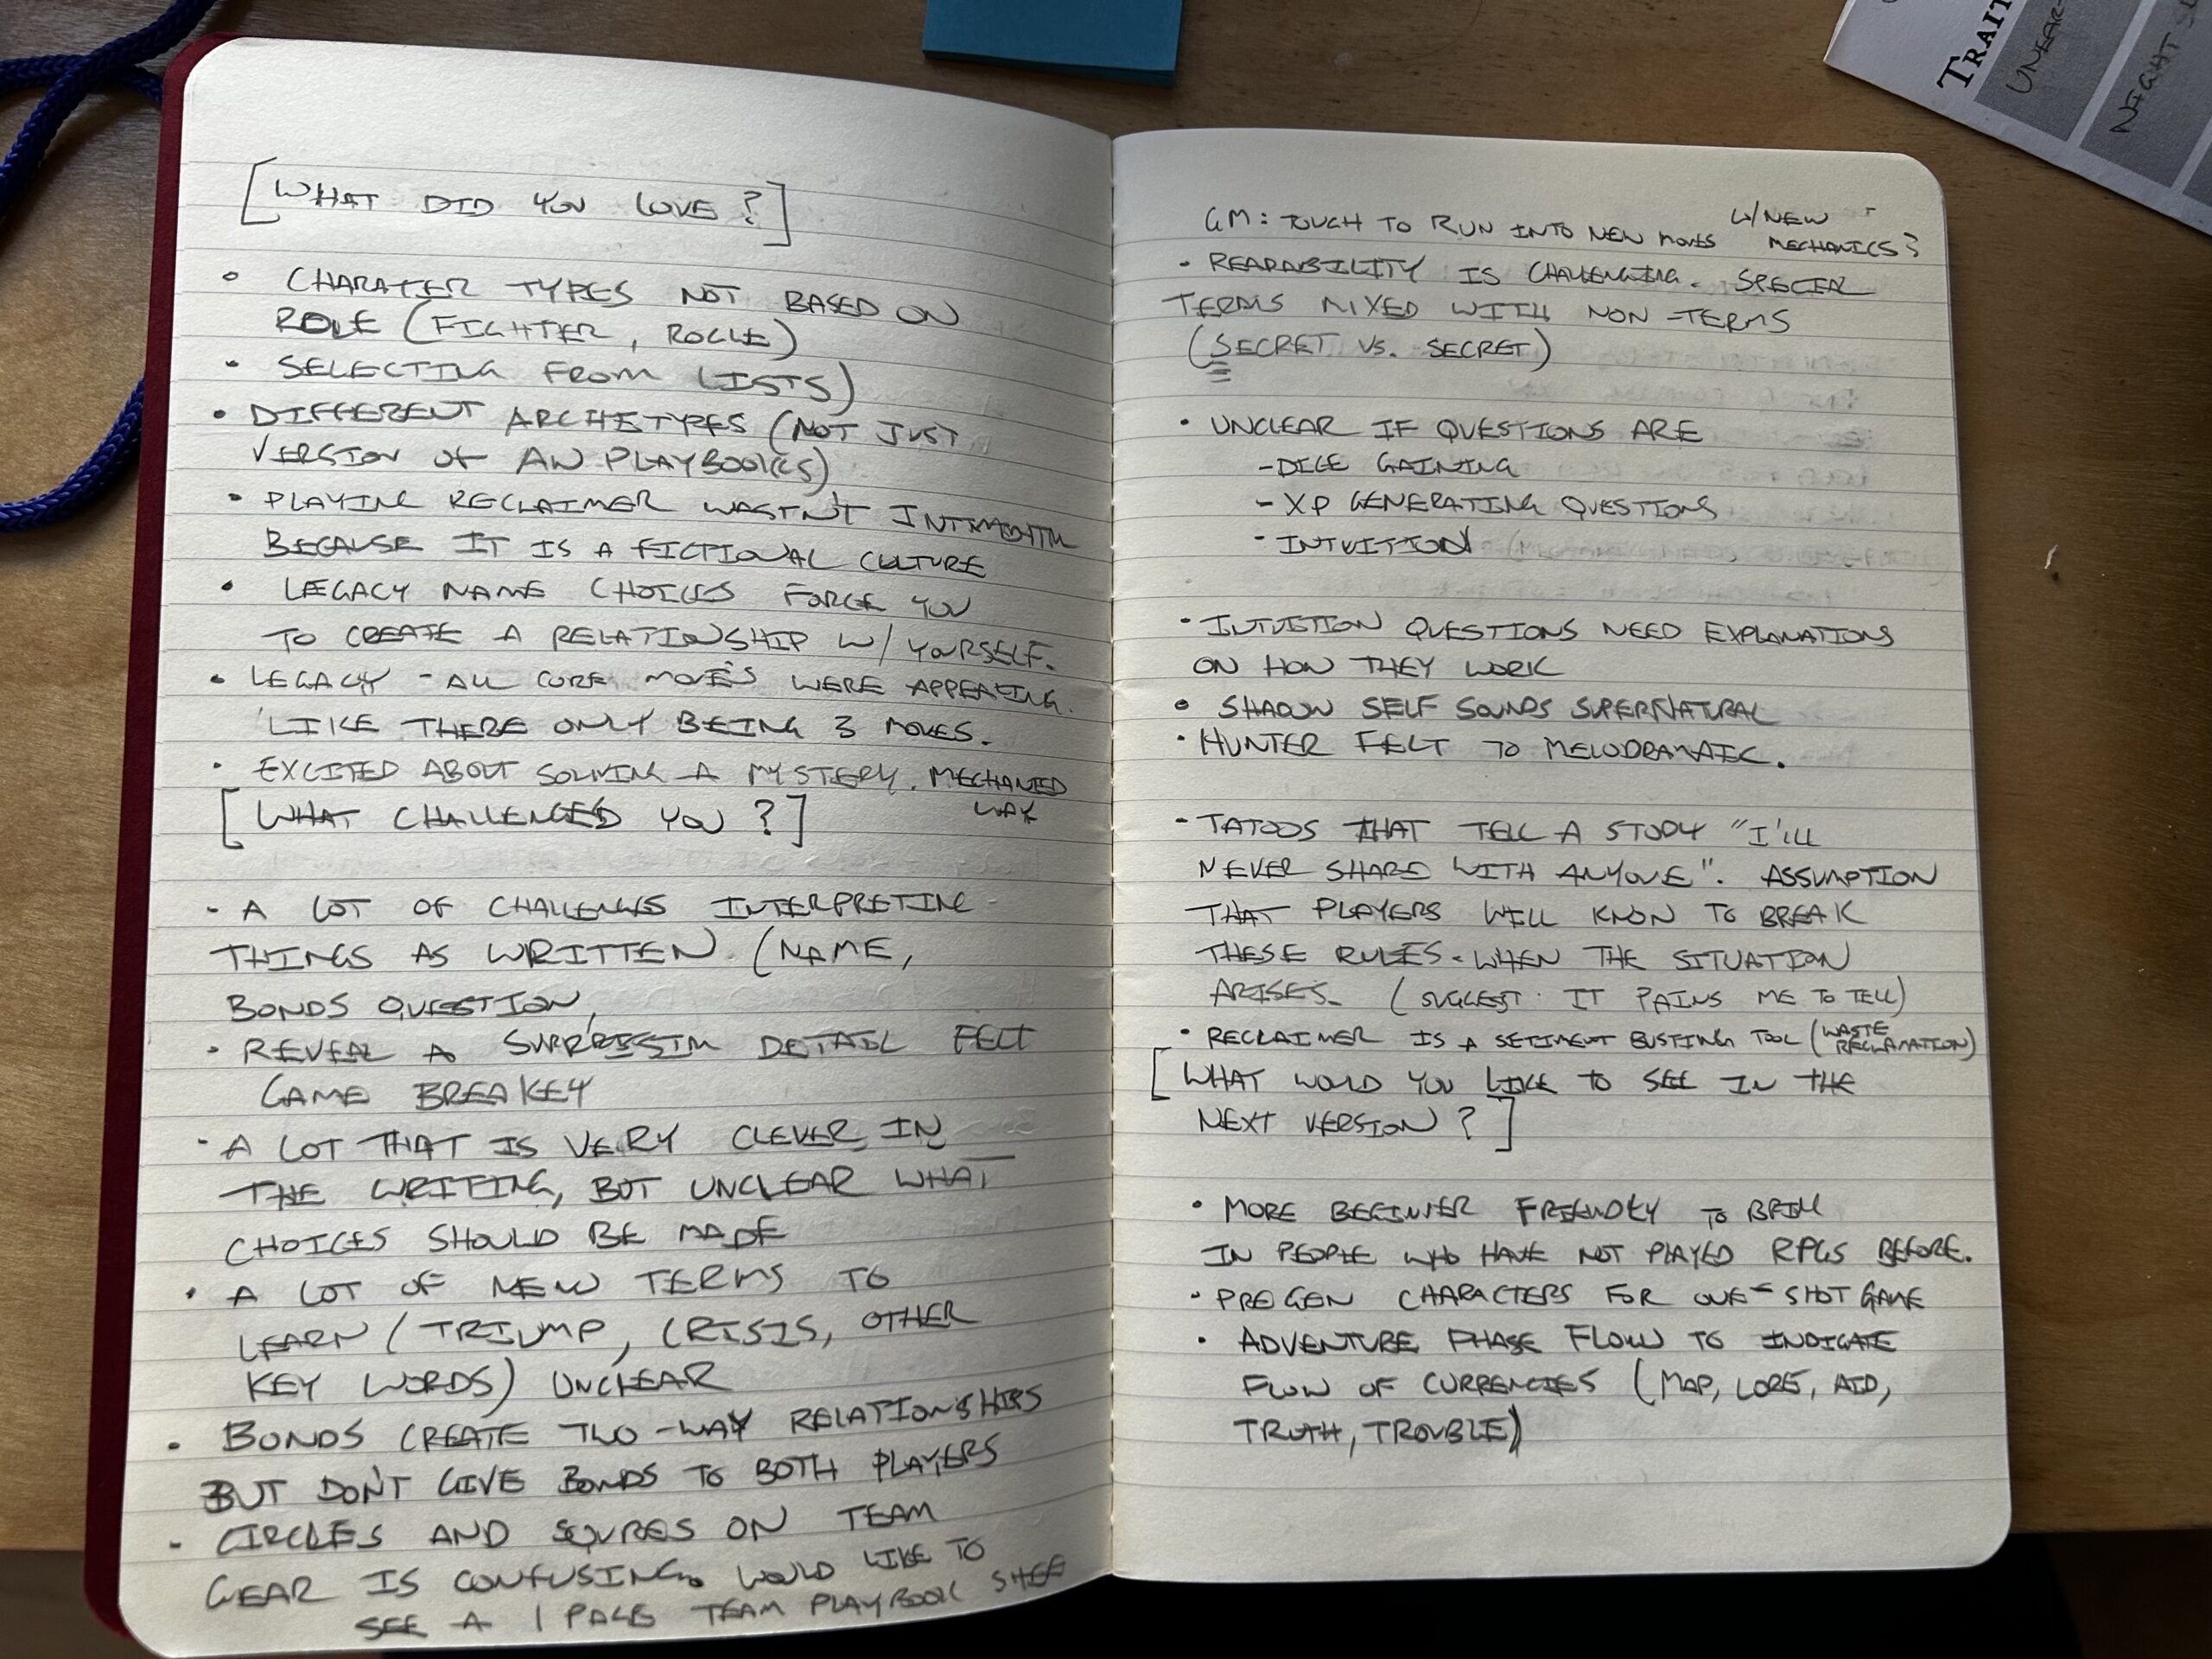 [WHAT DID YOU LOVE?]
• CHARATER TYPES NOT BASED ON
ROLE (FIGHTER, ROGUE)
• SELECTING FROM LISTS)
• DIFFERENT ARCHETYPES (NOT JUST
VERSION OF AW PLAYBOOKS)
• PLAYING RECLAIMER WASN'T
BECAUSE IT IS A FICTIONAL CULTURE
• LEGACY NAME CHOICES FORCE YOU
TO CREATE A RELATIONSHIP W/ YOURSELF.
• LEGACY - ALL CORE MOVES WERE APPEALING.
LIKE THERE ONLY BEING 3 MOVES.
• EXCITED ABOUT SOLVING A MYSTERY. MECHANIED
WAY
[WHAT CHALLENGED YOU?]
- A LOT OF CHALLENGES INTERPRETING
THINGS AS WRITTEN. (NAME,
BONDS QUESTION,
• REVEAL A SURPRISSING DETAIL FELT
GAME BREAKEY
• A LOT THAT IS VERY CLEVER IN
THE WRITING, BUT UNCLEAR WHAT
CHOICES SHOULD BE MADE
• A LOT OF NEW TERMS TO
LEARN (TRIUMP, CRISIS, OTHER
KEY WORDS) UNCLEAR
• BONDS CREATE TWO-WAY RELATIONSHIPS
BUT DON'T GIVE BONDS TO BOTH PLAYERS
- CIRCLES AND SQURES ON TEAM
GEAR IS CONFUSING. WOULD LIKE TO
SEE A 1 PAGE TEAM PLAYBOOK SHEE
GM: TOUGH TO RUN INTO NEW MOVES W/NEW
MECHANICS?
• READABILITY IS CHALLENGING. SPECIAL
TERMS MIXED WITH NON-TERMS
(SECRET VS. SECRET)
• UNCLEAR IF QUESTIONS ARE
- DICE GAINING
- XP GENERATING QUESTIONS
- INTUITION
• INTUITION QUESTIONS NEED EXPLANATIONS
ON HOW THEY WORK
• SHADOW SELF SOUNDS SUPERNATURAL
• HUNTER FELT TO MELODRAMATIC.
- TATOOS THAT TELL A STORY "I'LL
NEVER SHARE WITH ANYONE". ASSUMPTION
THAT PLAYERS WILL KNOW TO BREAK
THESE RULES. WHEN THE SITUATION
ARISES. (SUGGEST: IT PAINS ME TO TELL)
• RECLAIMER IS A SETIMENT BUSTING TOOL (WASTE
RECLAMATION)
[WHAT WOULD YOU LIKE TO SEE IN THE
NEXT VERSION?]
• MORE BEGINNER FRIENDLY TO BRING
IN PEOPLE WHO HAVE NOT PLAYED RPGS BEFORE.
• PREGEN CHARACTERS FOR ONE-SHOT GAME
• ADVENTURE PHASE FLOW TO INDICATE
FLOW OF CURRENCIES (MAP, LORE, AID,
TRUTH, TROUBLE)
TRAIT
UNEAR
NIGHT